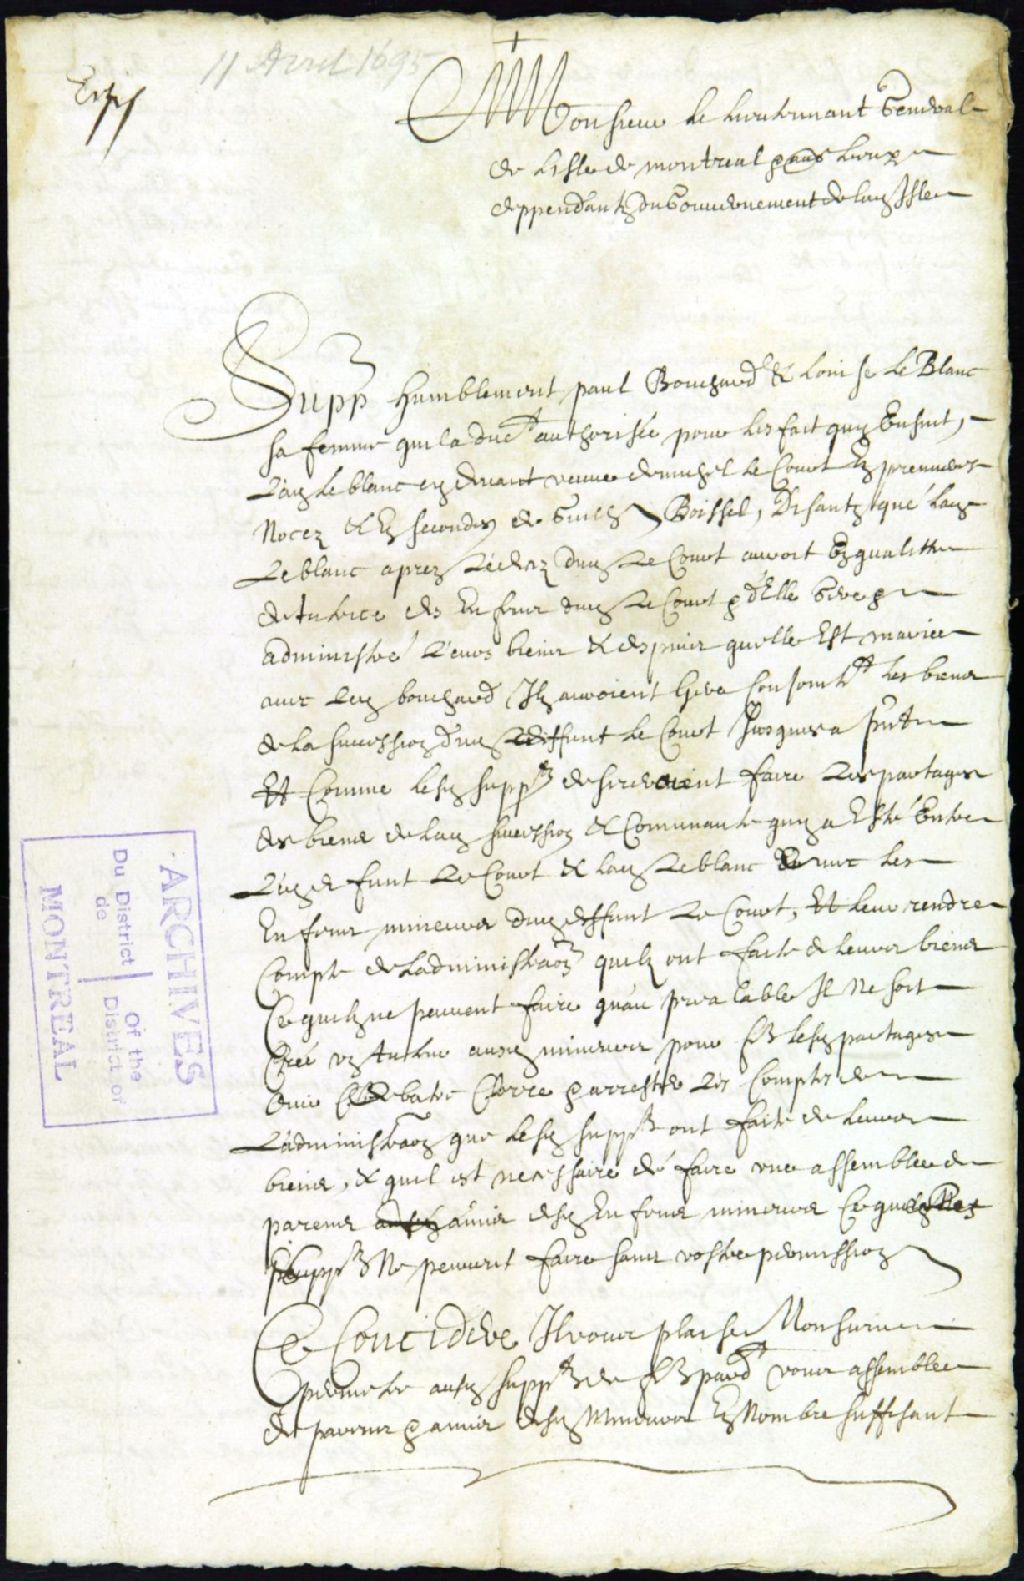 11 Avril 1695
Monsieur le lieutenant General
de Lisle de montreal & aux Lieux
deppendantz du Gouvernement de lad Isle
Supp Humblement paul Bouchard & Louise Le Blanc
sa femme quil a due authorisée pour les fait quy Ensuit,
Lad Leblanc cy devant veuve de michel Le Comt En premieres
Nocez & En secondes de Boissel, Disantz que lad
Leblanc aprez Le decez dud Le Comt avoit En qualitte
de tutrice des Enfens dud Le Comt & d'Elle
administré Leurs biens & despuis quelle Est mariee
avec Led bouchard Ils avoient Conjointt les biens
de la succession dud deffunt Le Comt Jusques a pnt
Et Comme lesd suppts desireroient faire Les partages
des biens de lad succession & Communauté quy a Esté Entre
Led deffunt Le Comt & lad Leblanc avec les
Enfens mineurs dud deffunt Le Comt, Et leur rendre
Compte de Ladministraon quilz ont faite de leurs biens
Ce quilz ne peuvent faire qu'au prealable Il ne soit
Creé un tuteur ausd mineurs pour fe lesd partages
Ouir debatre Clorre & arrester Les Comptes de
Ladministraon que lesd suppts ont faite de leurs
biens, & quil est necessaire de faire une assemblee de
parens amis desd Enfens mineurs Ce que lesd
suppts Ne peuvent faire sans vostre permission
Ce Concideré Il vous plaise Monsieur
permetre ausd suppts de fe pardt vous assemblee
de parens & amis desd Mineurs En Nombre suffisant
ARCHIVES
Du District | Of the
de | District of
MONTREAL